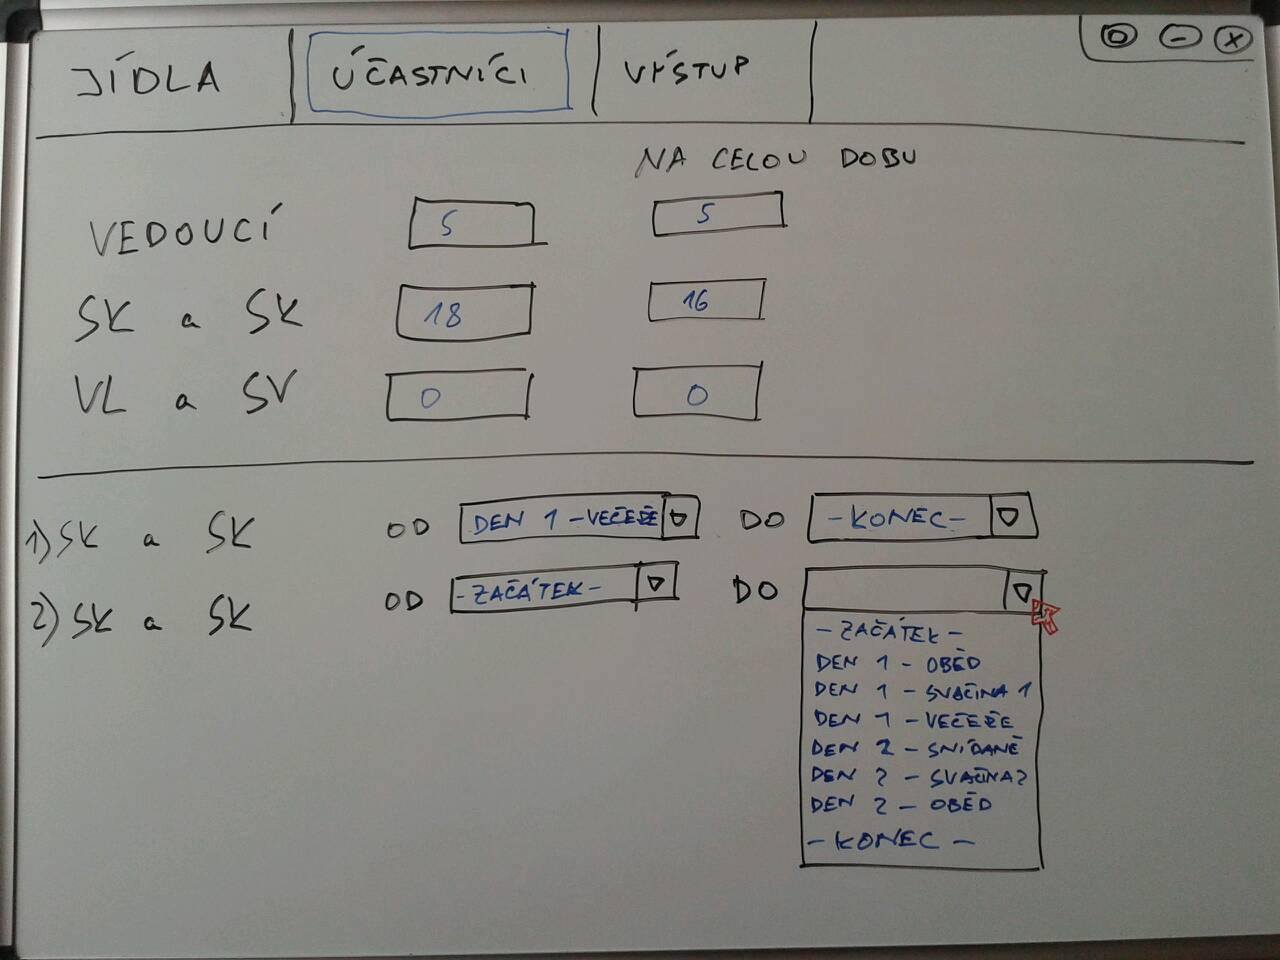 JÍDLA ÚČASTNÍCI VÝSTUP
NA CELOU DOBU
VEDOUCÍ 5 5
SK a SK 18 16
VL a SV 0 0
1) SK a SK OD DEN 1 - VEČEŘE DO - KONEC -
2) SK a SK OD - ZAČÁTEK - DO
- ZAČÁTEK -
DEN 1 - OBĚD
DEN 1 - SVAČINA 1
DEN 1 - VEČEŘE
DEN 2 - SNÍDANĚ
DEN 2 - SVAČINA2
DEN 2 - OBĚD
- KONEC -